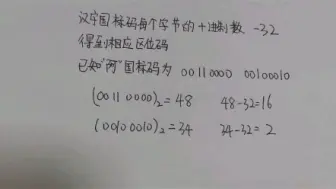 汉字国标码每个字节的十进制数 -32
得到相应区位码
已知"啊"国标码为 00110000 00100010
(0011 0000)₂ = 48 48-32=16
(0010 0010)₂ = 34 34-32= 2